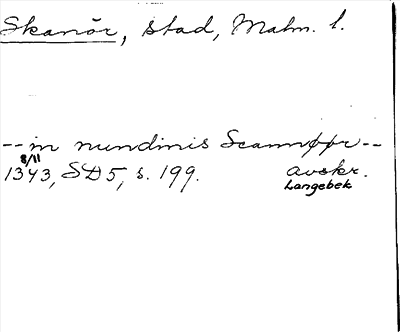 Skanör, stad, Malm. l.
-- in nundinis Scannøpr --
8/11
1343, SD 5, s. 199. avskr.
Langebek